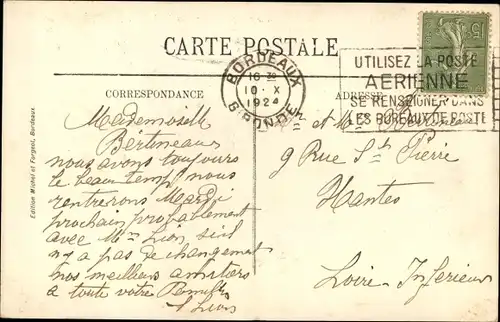 CARTE POSTALE
BORDEAUX
16 30
10 - X
1924
GIRONDE
UTILISEZ LA POSTE
AERIENNE
SE RENSEIGNER DANS
LES BUREAUX DE POSTE
CORRESPONDANCE
ADRESSE
Edition Michel et Forgeot, Bordeaux.
Mademoiselle
Bertineau
nous avons toujours
le beau temp nous
rentrerons Mardi
prochain probablement
avec Mme Lion si il
n y a pas de changement
nos meilleurs amitiers
a toute votre Famille
Lion
et M
9 Rue St Pierre
Nantes
Loire-Inferieur